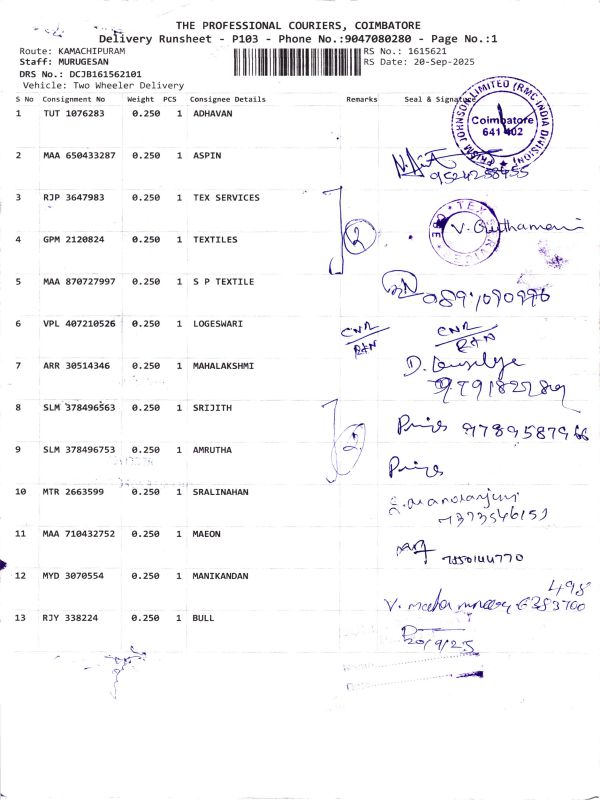 THE PROFESSIONAL COURIERS, COIMBATORE
Delivery Runsheet - P103 - Phone No.:9047080280 - Page No.:1
Route: KAMACHIPURAM RS No.: 1615621
Staff: MURUGESAN RS Date: 20-Sep-2025
DRS No.: DCJB161562101
Vehicle: Two Wheeler Delivery
S No Consignment No Weight PCS Consignee Details Remarks Seal & Signature
1 TUT 1076283 0.250 1 ADHAVAN
PRISM JOHNSON LIMITED (RMC-INDIA DIVISION)
Coimbatore
641 402
2 MAA 650433287 0.250 1 ASPIN
3 RJP 3647983 0.250 1 TEX SERVICES
4 GPM 2120824 0.250 1 TEXTILES 2 V.
5 MAA 870727997 0.250 1 S P TEXTILE
6 VPL 407210526 0.250 1 LOGESWARI CNR CNR
7 ARR 30514346 0.250 1 MAHALAKSHMI D.
8 SLM 378496563 0.250 1 SRIJITH
9 SLM 378496753 0.250 1 AMRUTHA 2
10 MTR 2663599 0.250 1 SRALINAHAN
11 MAA 710432752 0.250 1 MAEON
12 MYD 3070554 0.250 1 MANIKANDAN
13 RJY 338224 0.250 1 BULL
20/9/25